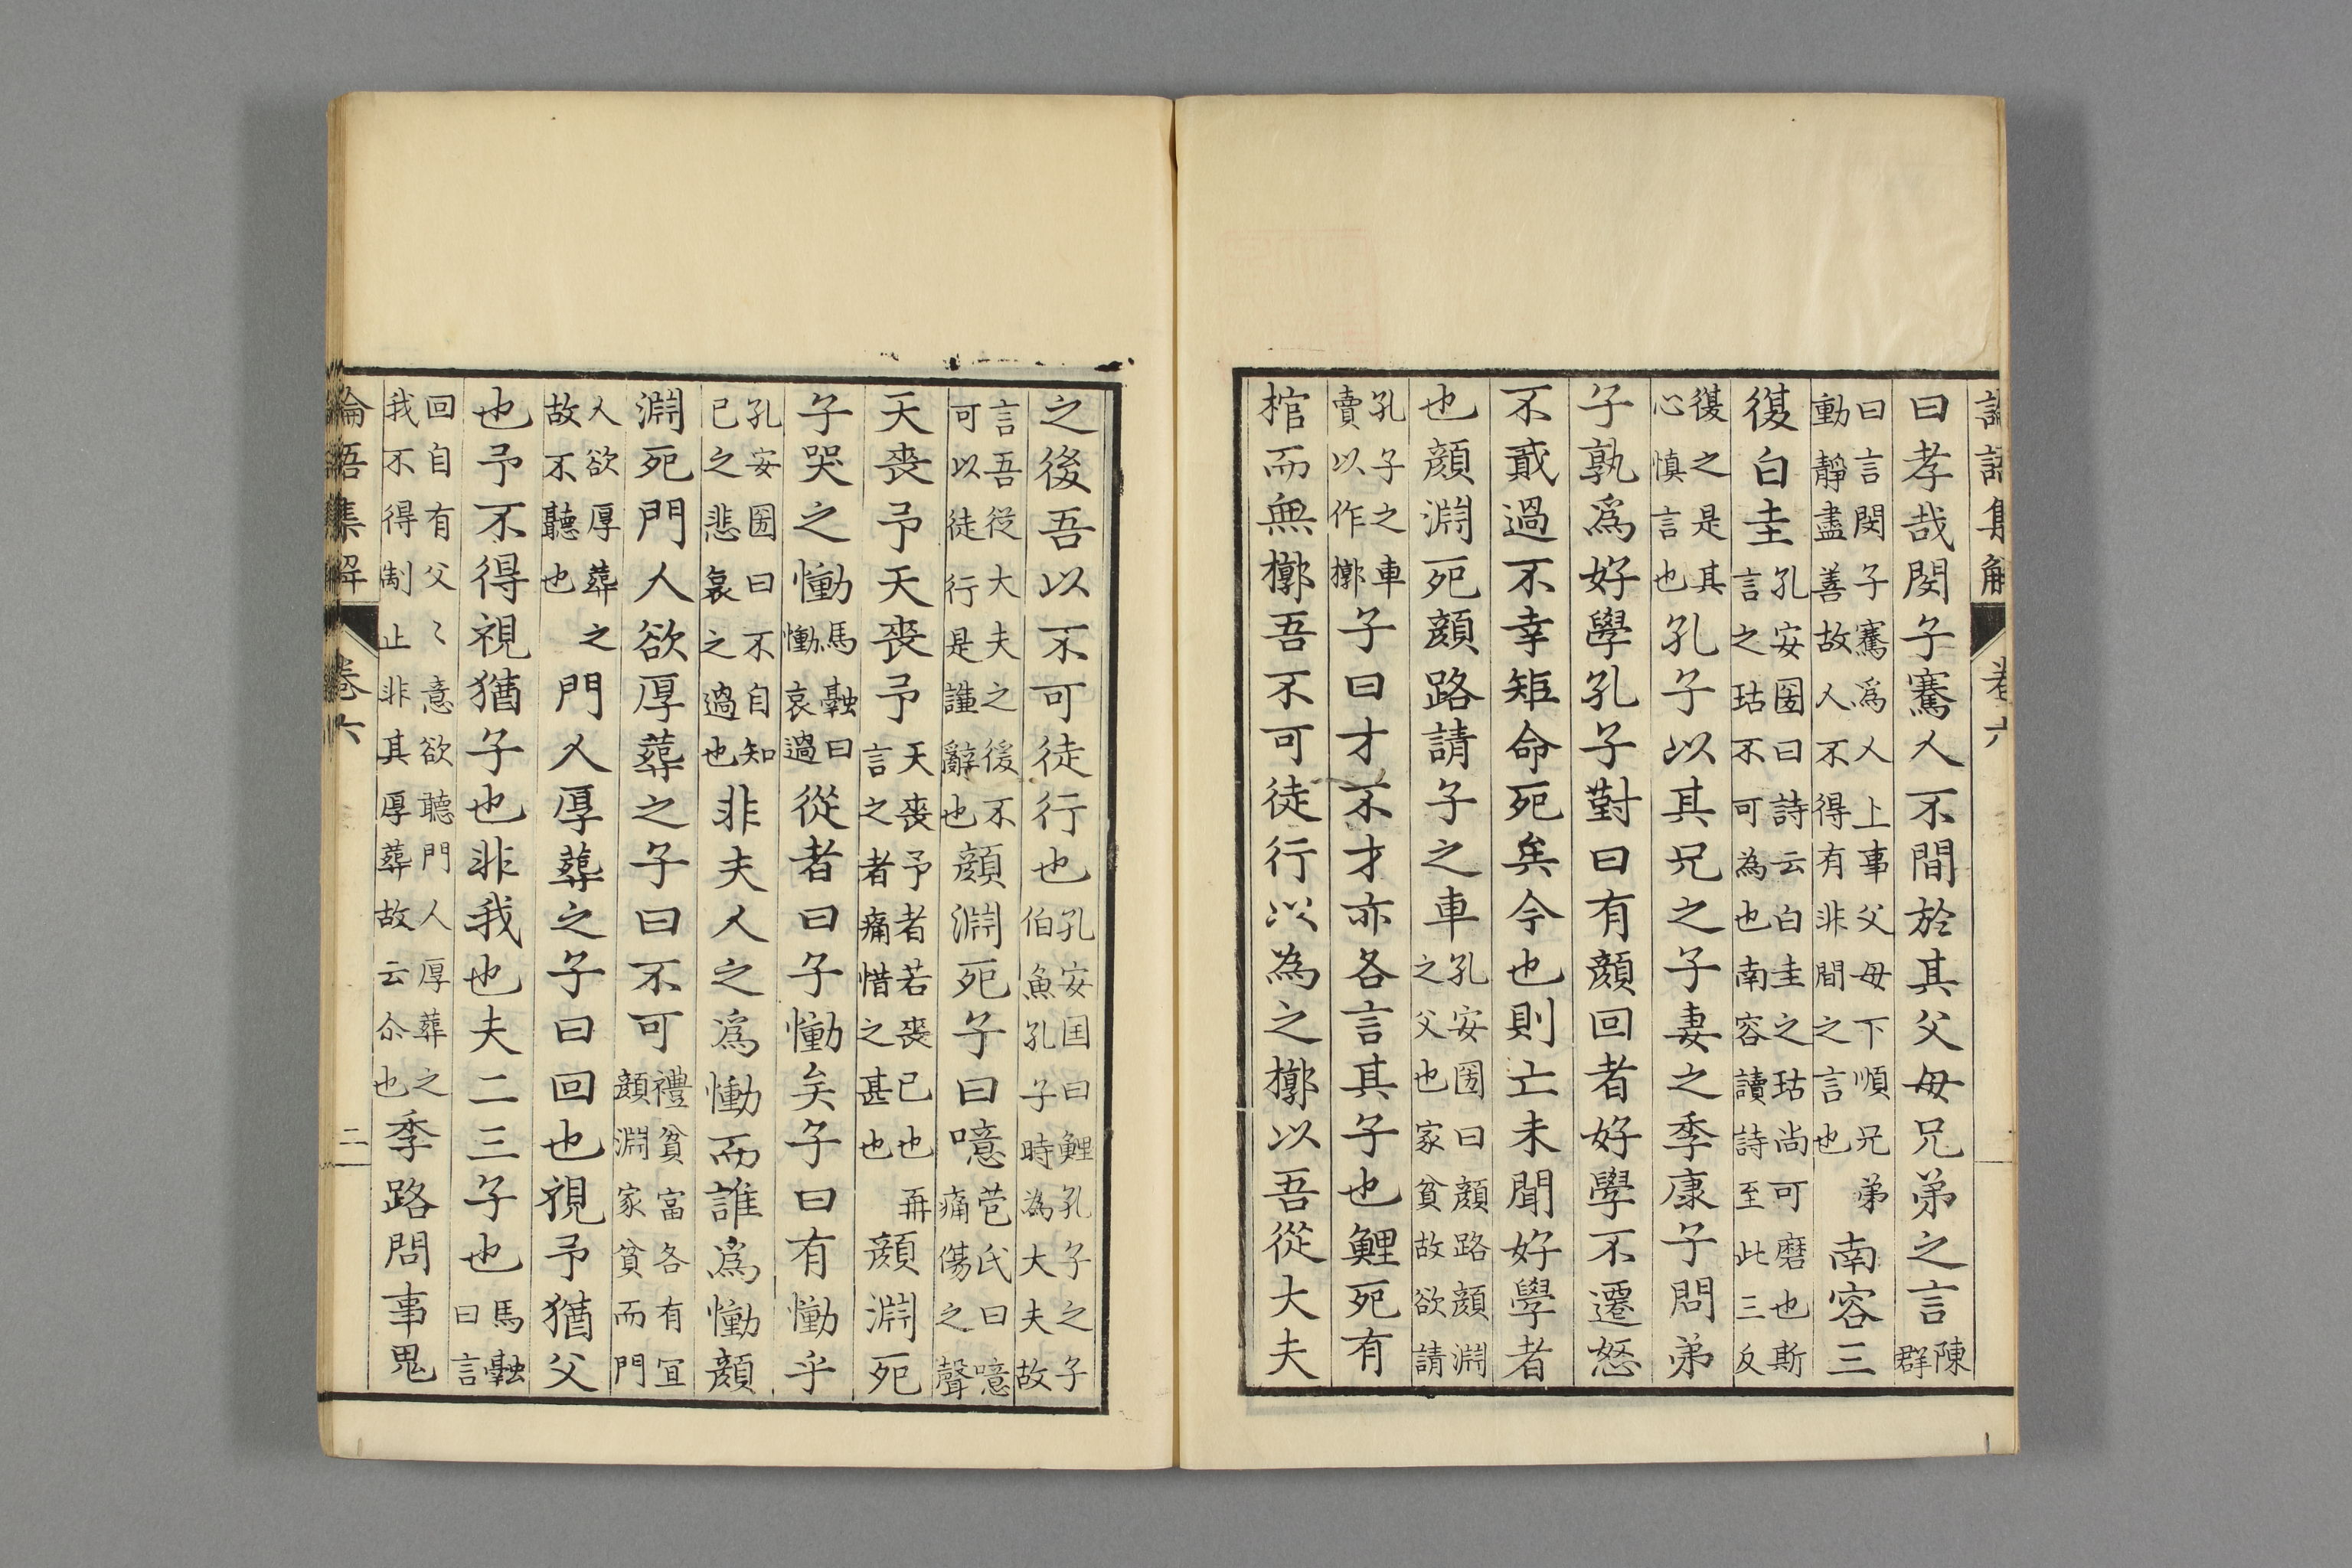 論語集解 卷六
曰孝哉閔子騫人不間於其父母兄弟之言陳群
曰言閔子騫爲人上事父母下順兄弟動靜盡善故人不得有非間之言也南容三
復白圭孔安國曰詩云白圭之玷尚可磨也斯言之玷不可為也南容讀詩至此三反
復之是其心慎言也孔子以其兄之子妻之季康子問弟
子孰爲好學孔子對曰有顔回者好學不遷怒
不貳過不幸短命死矣今也則亡未聞好學者
也顔淵死顔路請子之車孔安國曰顔路顔淵之父也家貧故欲請
孔子之車賣以作槨子曰才不才亦各言其子也鯉死有
棺而無槨吾不可徒行以為之槨以吾從大夫
之後吾以不可徒行也孔安国曰鯉孔子之子伯魚孔子時為大夫故
言吾從大夫之後不可以徒行是謙辭也顔淵死子曰噫苞氏曰噫痛傷之聲
天喪予天喪予天喪予者若喪己也再言之者痛惜之甚也顔淵死
子哭之慟馬融曰慟哀過從者曰子慟矣子曰有慟乎
孔安國曰不自知己之悲哀之過也非夫人之爲慟而誰爲慟顔
淵死門人欲厚葬之子曰不可禮貧富各有宜顔淵家貧而門
人欲厚葬之故不聽也門人厚葬之子曰回也視予猶父
也予不得視猶子也非我也夫二三子也馬融曰言
回自有父〻意欲聽門人厚葬之我不得制止非其厚葬故云尒也季路問事鬼
論語集解 卷六 二